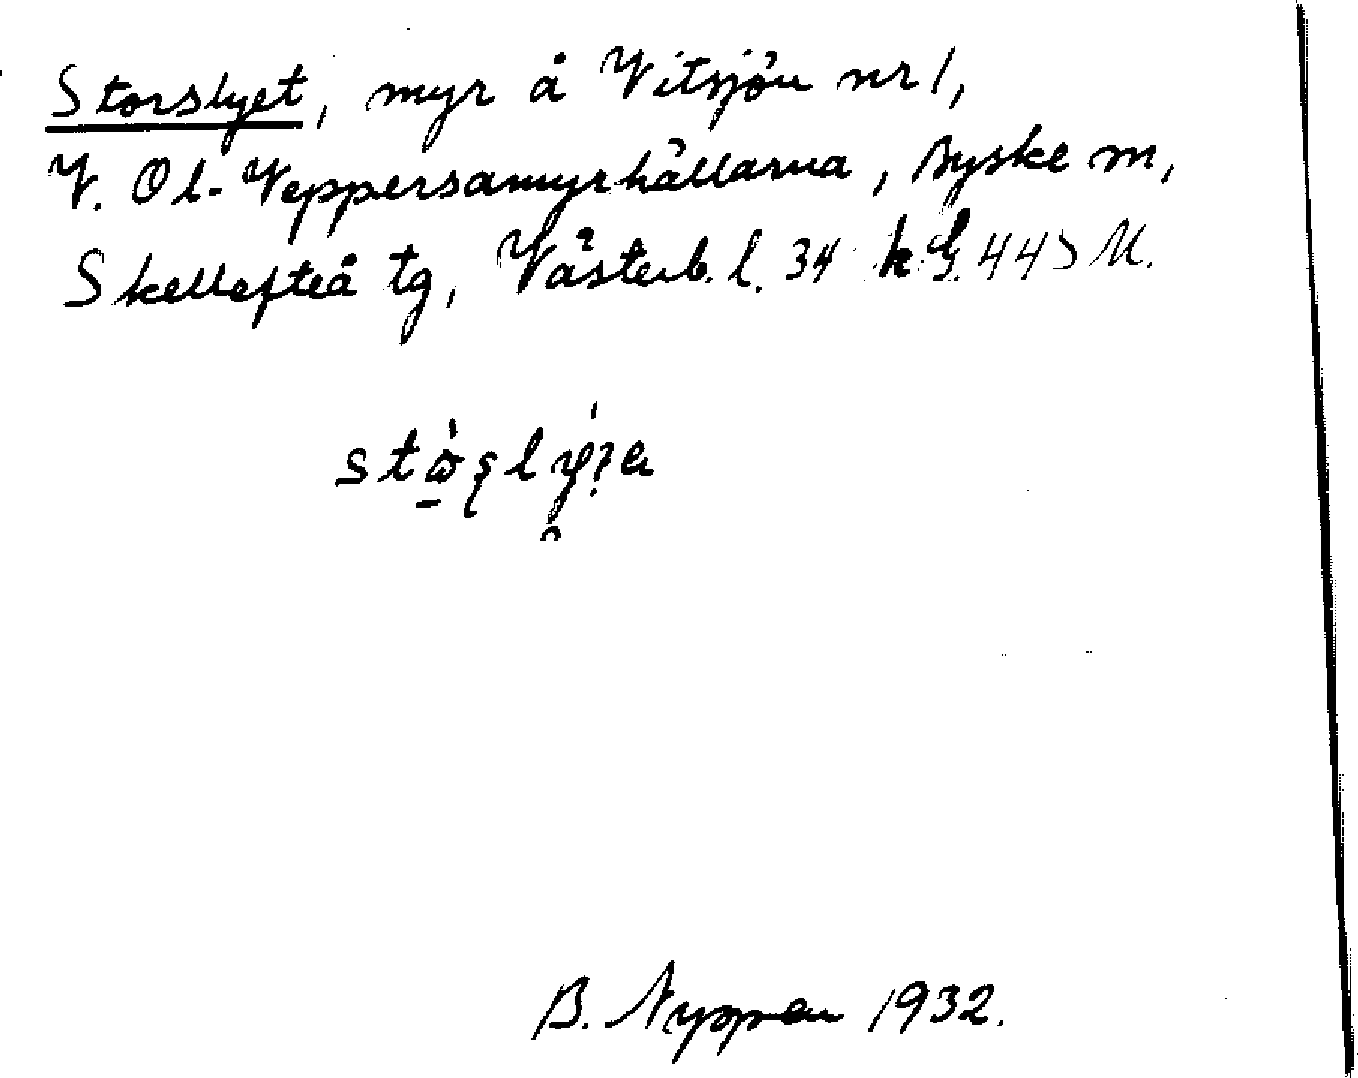 Storslyet, myr å Vitsjön nr 1,
V. Ol-Veppersamyrhällarna, Byske sn,
Skellefteå tg, Västerb. l. 34 k G. 445 M.
B. Nyppen 1932.